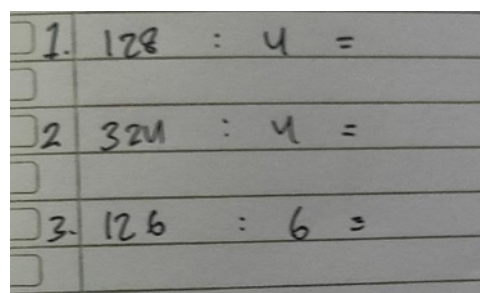 1. 128 : 4 =
2 324 : 4 =
3. 126 : 6 =